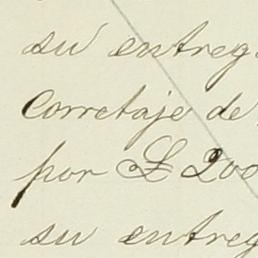 su entreg
Corretaje de
por £ 200
su entreg